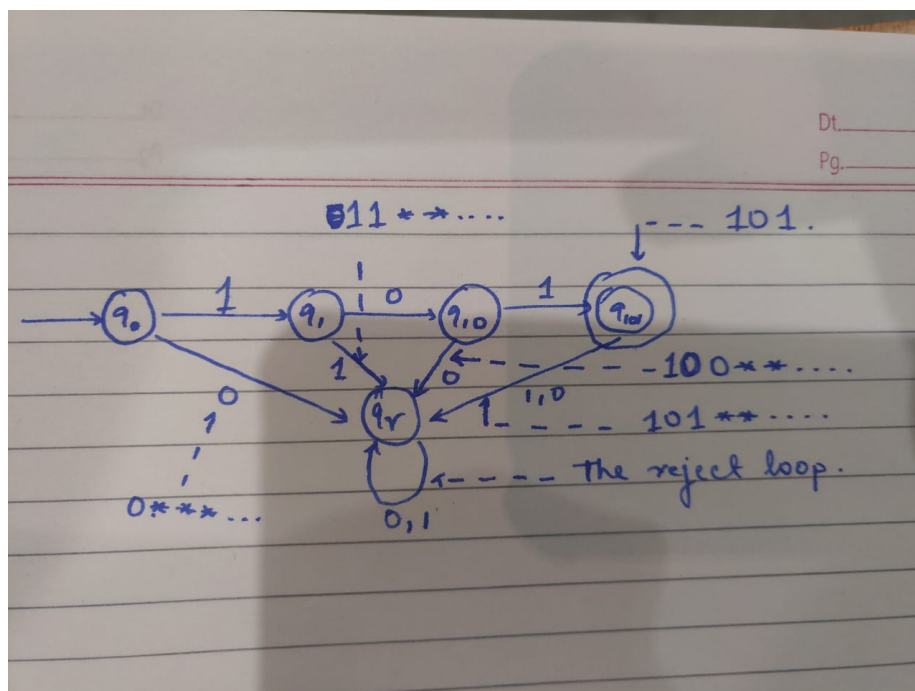 Dt.
Pg.
11 * * ....
--- 101.
1 0 1
q0 q1 q10 q101
1 0 1,0
100 * * ....
0 qr
101 ** ....
The reject loop.
0 * * * ...
0,1